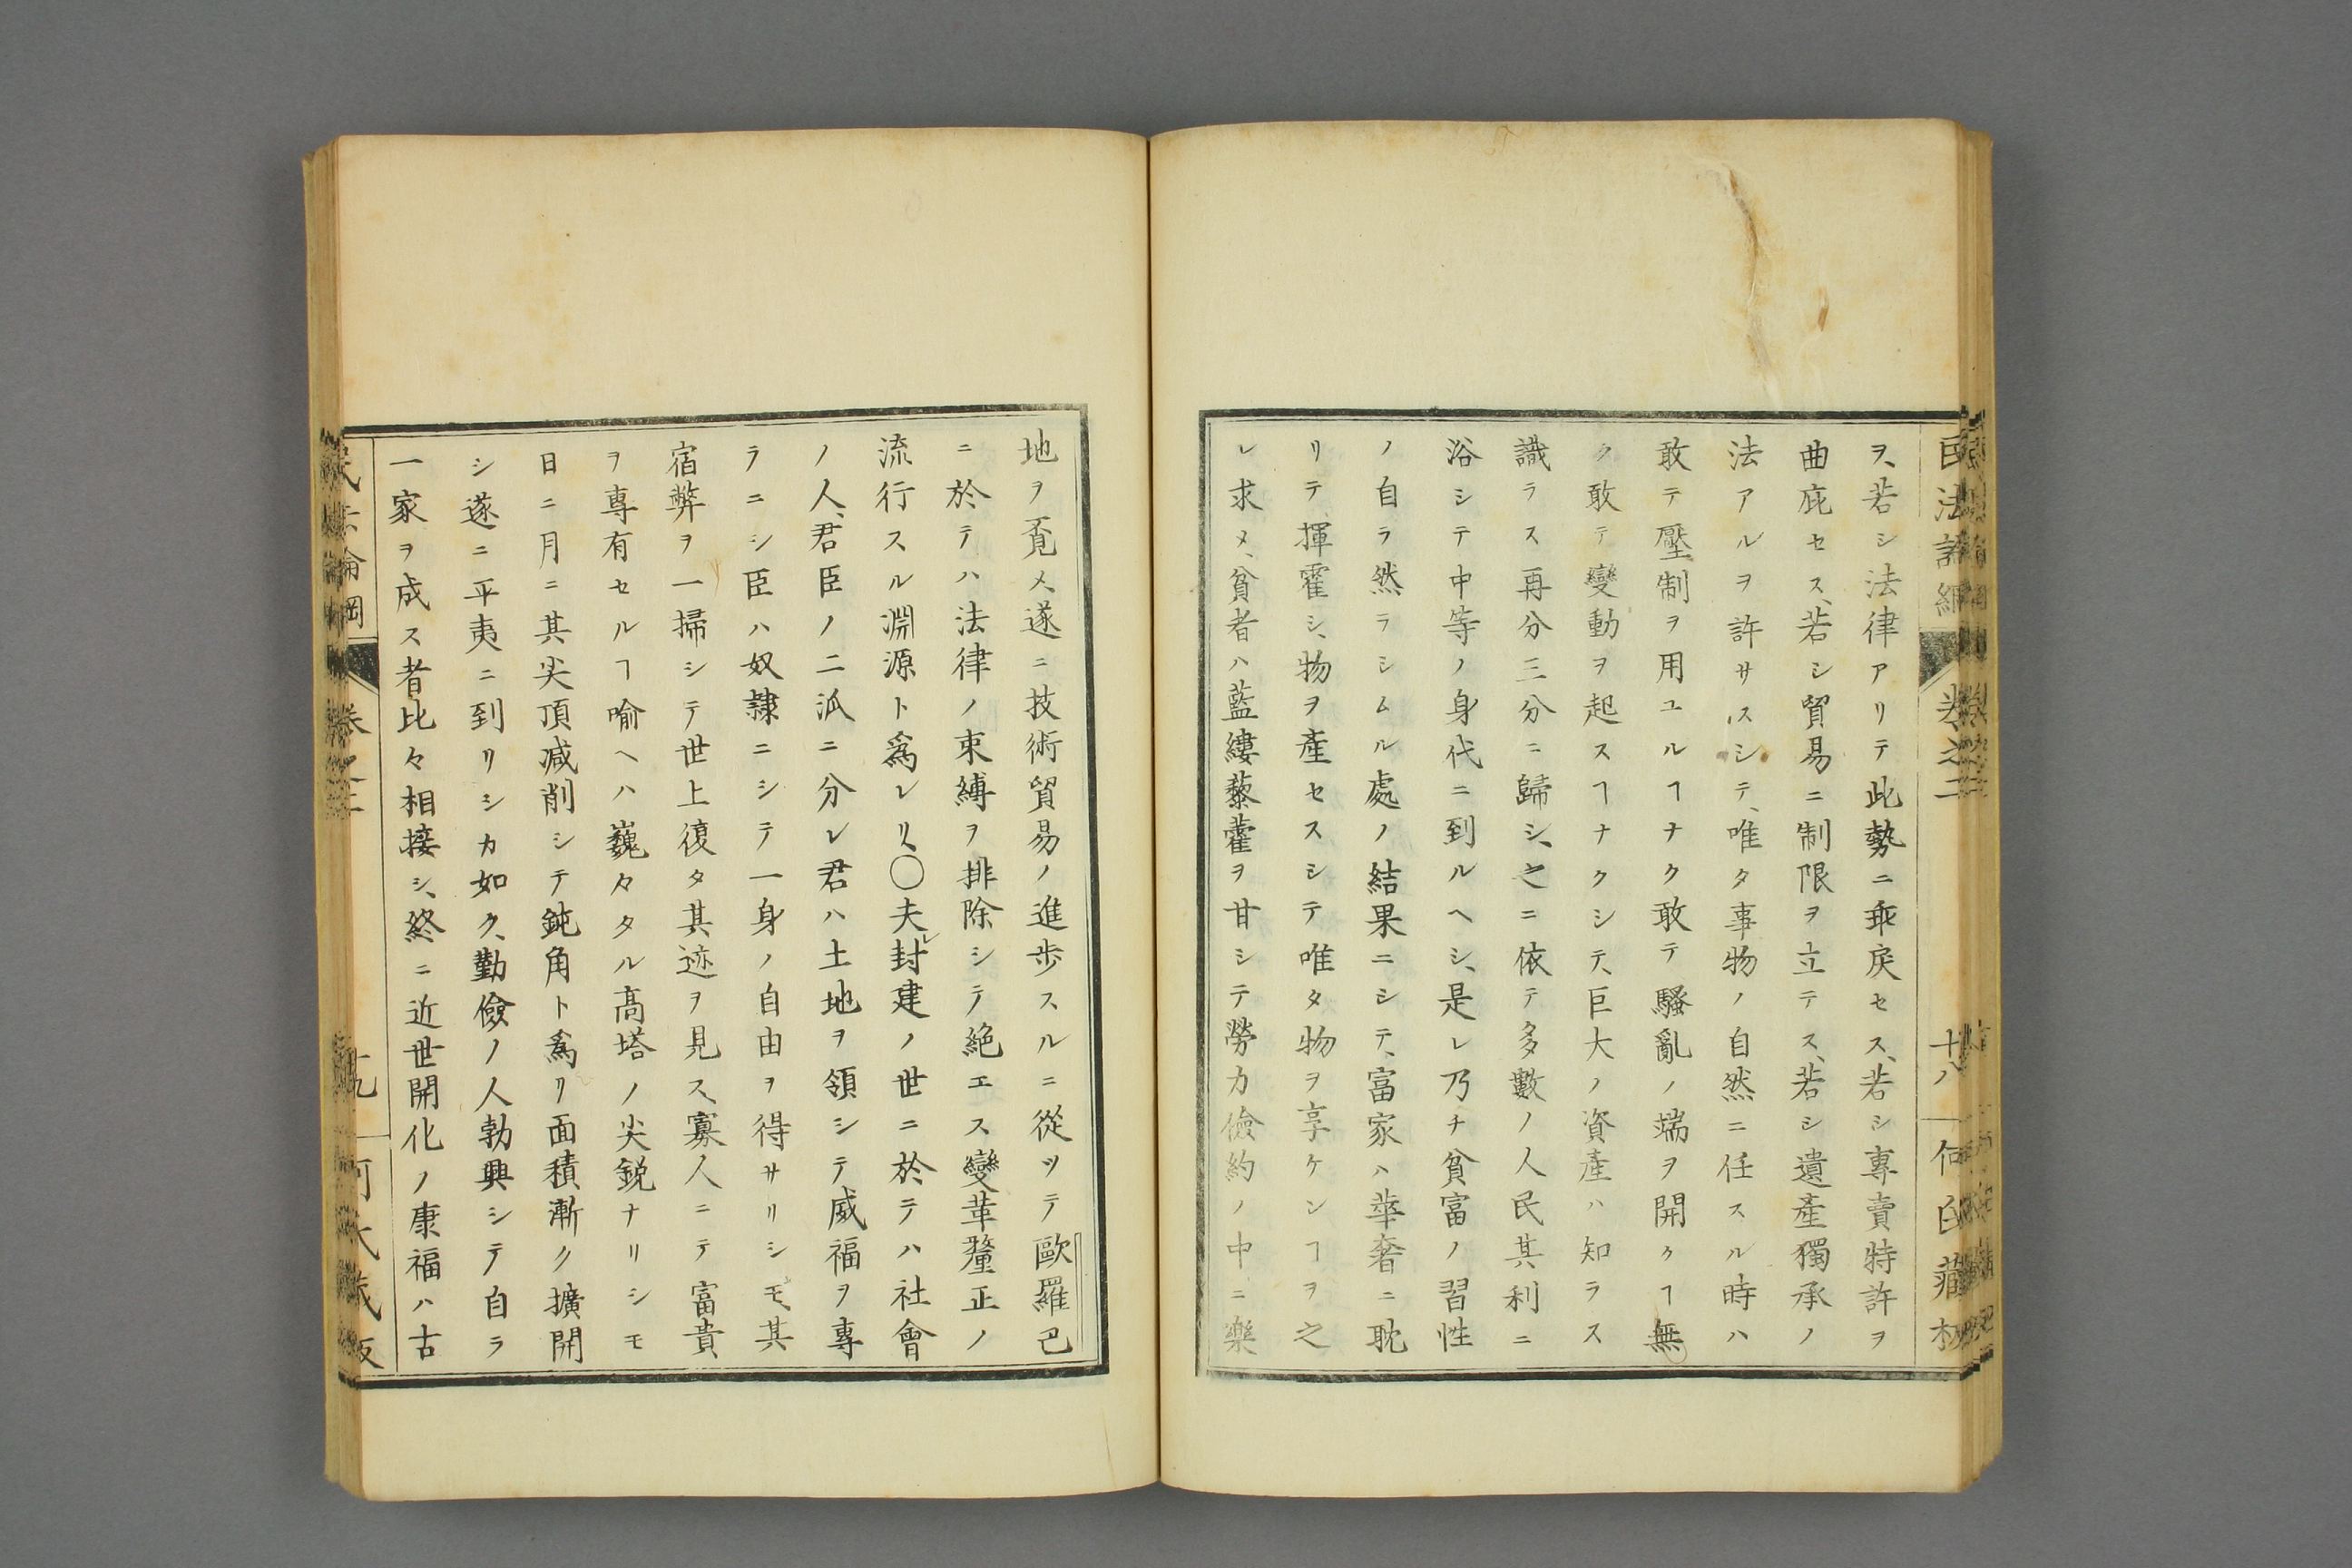 ヲ、若シ法律アリテ此勢ニ乖戾セス、若シ專賣特許ヲ
曲庇セス、若シ貿易ニ制限ヲ立テス、若シ遺產獨承ノ
法アルヲ許サスシテ、唯タ事物ノ自然ニ任スル時ハ
敢テ壓制ヲ用ユルヿナク敢テ騷亂ノ端ヲ開クヿ無
ク敢テ變動ヲ起スヿナクシテ、巨大ノ資產ハ知ラス
識ラス再分三分ニ歸シ、之ニ依テ多數ノ人民其利ニ
浴シテ中等ノ身代ニ到ルヘシ、是レ乃チ貧富ノ習性
ノ自ラ然ラシムル處ノ結果ニシテ、富家ハ華奢ニ耽
リテ揮霍シ、物ヲ產セスシテ唯タ物ヲ享ケンヿヲ之
レ求メ、貧者ハ藍縷藜藿ヲ甘シテ勞力儉約ノ中ニ樂
民法論綱 卷之二 十八 何氏藏板
地ヲ覔メ、遂ニ技術貿易ノ進歩スルニ從ツテ歐羅巴
ニ於テハ法律ノ束縛ヲ排除シテ絶エス變革釐正ノ
流行スル淵源ト爲レリ、〇夫レ封建ノ世ニ於テハ社會
ノ人、君臣ノ二派ニ分レ君ハ土地ヲ領シテ威福ヲ專
ラニシ臣ハ奴隷ニシテ一身ノ自由ヲ得サリシモ、其
宿弊ヲ一掃シテ世上復タ其迹ヲ見ス、寡人ニテ富貴
ヲ專有セルヿ喻ヘハ巍々タル高塔ノ尖鋭ナリシモ
日ニ月ニ其尖頂減削シテ鈍角ト爲リ面積漸ク擴開
シ遂ニ平夷ニ到リシカ如ク、勤儉ノ人勃興シテ自ラ
一家ヲ成ス者比々相接シ、終ニ近世開化ノ康福ハ古
民法論綱 卷之二 十九 何氏藏板